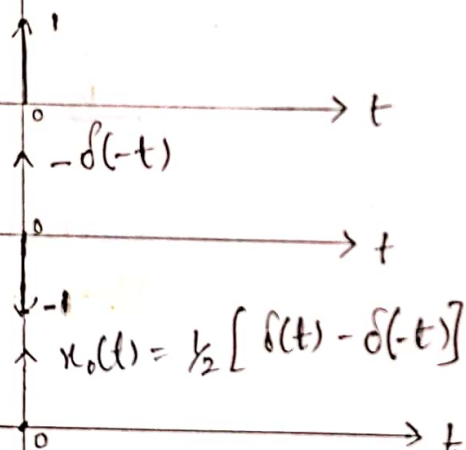 1
0 t
-δ(-t)
0 t
-1
x₀(t) = 1/2 [ δ(t) - δ(-t)]
0 t